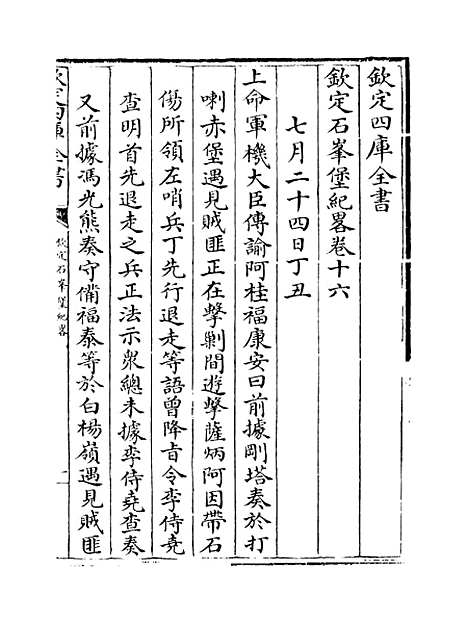 欽定四庫全書
欽定石峯堡紀畧卷十六
七月二十四日丁丑
上命軍機大臣傳諭阿桂福康安曰前據剛塔奏於打
喇赤堡遇見賊匪正在擊剿間遊擊薩炳阿因帶石
傷所領左哨兵丁先行退走等語曾降旨令李侍堯
查明首先退走之兵正法示衆總未據李侍堯查奏
又前據馮光熊奏守備福泰等於白楊嶺遇見賊匪
欽定四庫全書
欽定石峯堡紀畧